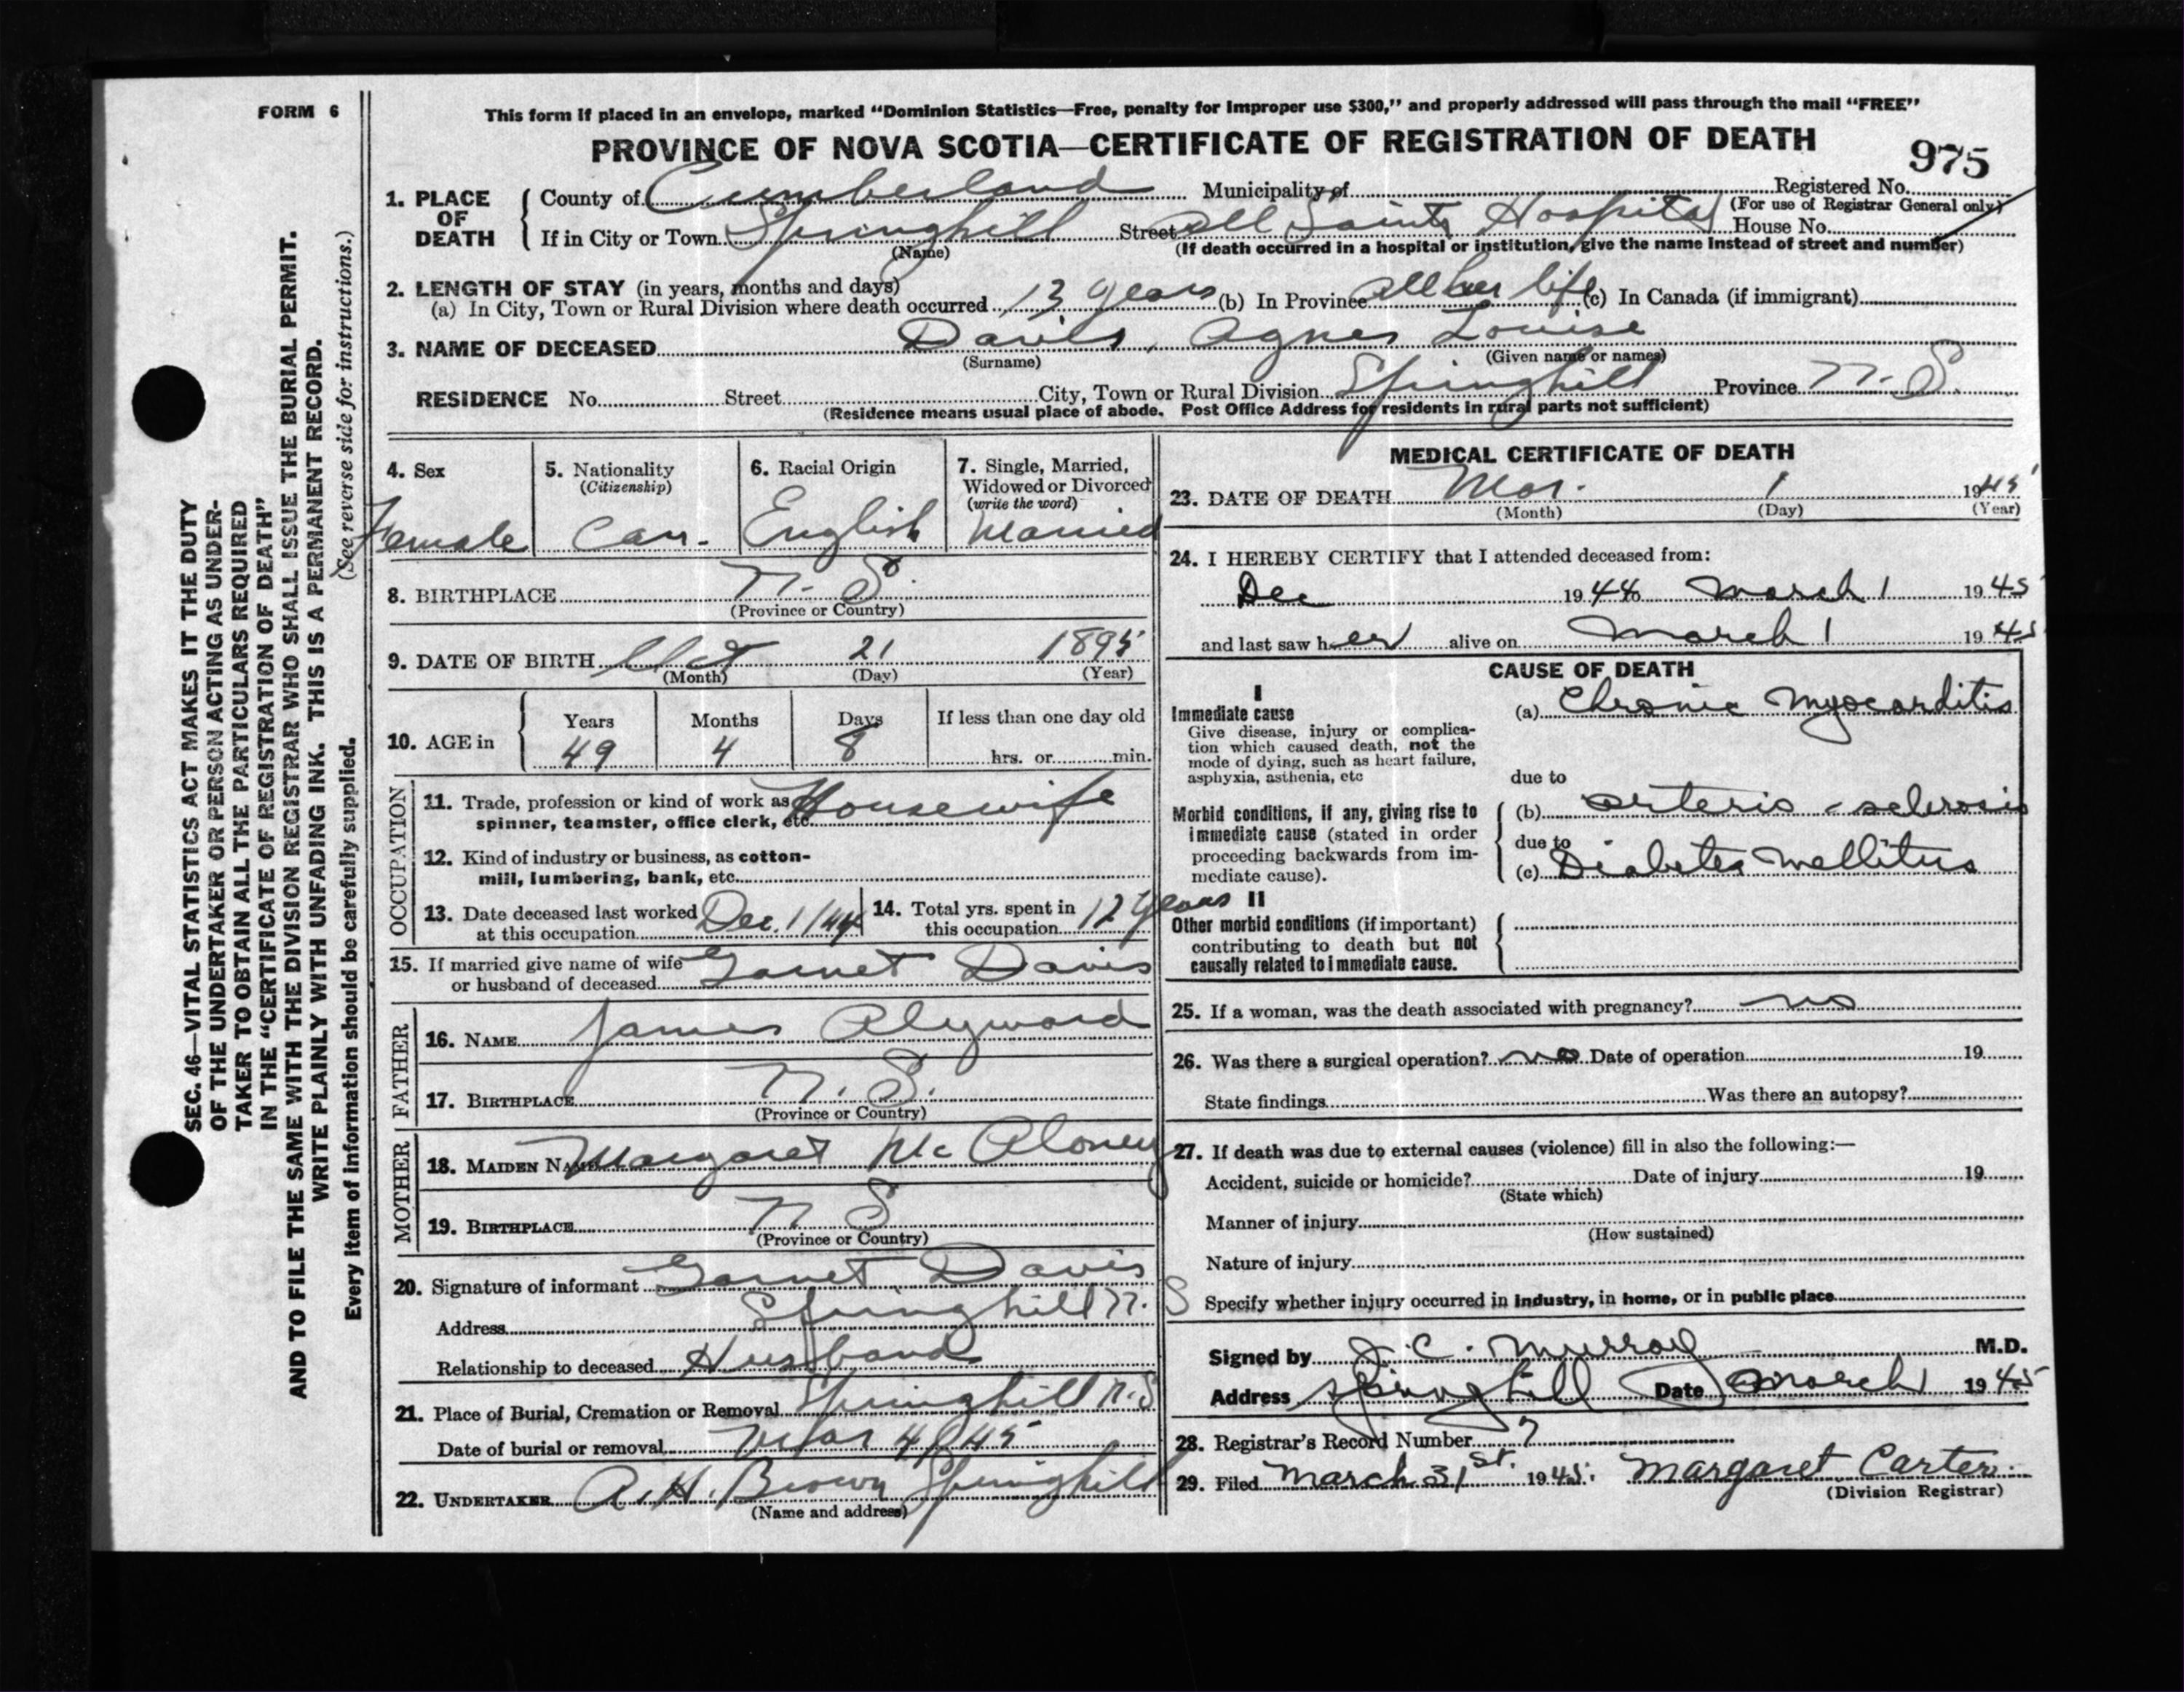 FORM 6
This form if placed in an envelope, marked "Dominion Statistics—Free, penalty for improper use $300," and properly addressed will pass through the mail "FREE"
PROVINCE OF NOVA SCOTIA—CERTIFICATE OF REGISTRATION OF DEATH
975
1. PLACE OF DEATH
County of Cumberland Municipality of Registered No.
(For use of Registrar General only)
If in City or Town Springhill Street All Saints Hospital House No.
(Name) (If death occurred in a hospital or institution, give the name instead of street and number)
2. LENGTH OF STAY (in years, months and days)
(a) In City, Town or Rural Division where death occurred 13 years (b) In Province All her life (c) In Canada (if immigrant)
3. NAME OF DECEASED Davis, Agnes Louise
(Surname) (Given name or names)
RESIDENCE No. Street City, Town or Rural Division Springhill Province N.S.
(Residence means usual place of abode. Post Office Address for residents in rural parts not sufficient)
4. Sex
Female
5. Nationality
(Citizenship)
Can.
6. Racial Origin
English
7. Single, Married,
Widowed or Divorced
(write the word)
Married
8. BIRTHPLACE N.S.
(Province or Country)
9. DATE OF BIRTH Oct 21 1895
(Month) (Day) (Year)
10. AGE in
Years Months Days If less than one day old
49 4 8 hrs. or min.
OCCUPATION
11. Trade, profession or kind of work as
spinner, teamster, office clerk, etc. Housewife
12. Kind of industry or business, as cotton-
mill, lumbering, bank, etc.
13. Date deceased last worked
at this occupation Dec. 1/44
14. Total yrs. spent in
this occupation 12 years
15. If married give name of wife
or husband of deceased Garnet Davis
FATHER
16. NAME James Alyward
17. BIRTHPLACE N.S.
(Province or Country)
MOTHER
18. MAIDEN NAME Margaret McAloney
19. BIRTHPLACE N S
(Province or Country)
20. Signature of informant Garnet Davis
Address Springhill N.S
Relationship to deceased Husband
21. Place of Burial, Cremation or Removal Springhill N.S
Date of burial or removal Mar 4/45
22. UNDERTAKER A. H. Brown Springhill
(Name and address)
MEDICAL CERTIFICATE OF DEATH
23. DATE OF DEATH Mar. 1 1945
(Month) (Day) (Year)
24. I HEREBY CERTIFY that I attended deceased from:
Dec 1944 to March 1 1945
and last saw her alive on March 1 1945
CAUSE OF DEATH
I
Immediate cause
Give disease, injury or complica-
tion which caused death, not the
mode of dying, such as heart failure,
asphyxia, asthenia, etc
(a) Chronic Myocarditis
due to
Morbid conditions, if any, giving rise to
immediate cause (stated in order
proceeding backwards from im-
mediate cause).
(b) arterio-sclerosis
due to
(c) Diabetes Mellitus
II
Other morbid conditions (if important)
contributing to death but not
causally related to immediate cause.
25. If a woman, was the death associated with pregnancy? no
26. Was there a surgical operation? no Date of operation 19
State findings Was there an autopsy?
27. If death was due to external causes (violence) fill in also the following:—
Accident, suicide or homicide? Date of injury 19
(State which)
Manner of injury
(How sustained)
Nature of injury
Specify whether injury occurred in industry, in home, or in public place
Signed by J. C. Murray M.D.
Address Springhill Date March 1 1945
28. Registrar's Record Number 7
29. Filed March 31st. 1945. Margaret Carter
(Division Registrar)
SEC. 46—VITAL STATISTICS ACT MAKES IT THE DUTY
OF THE UNDERTAKER OR PERSON ACTING AS UNDER-
TAKER TO OBTAIN ALL THE PARTICULARS REQUIRED
IN THE "CERTIFICATE OF REGISTRATION OF DEATH"
AND TO FILE THE SAME WITH THE DIVISION REGISTRAR WHO SHALL ISSUE THE BURIAL PERMIT.
WRITE PLAINLY WITH UNFADING INK. THIS IS A PERMANENT RECORD.
Every item of information should be carefully supplied. (See reverse side for instructions.)